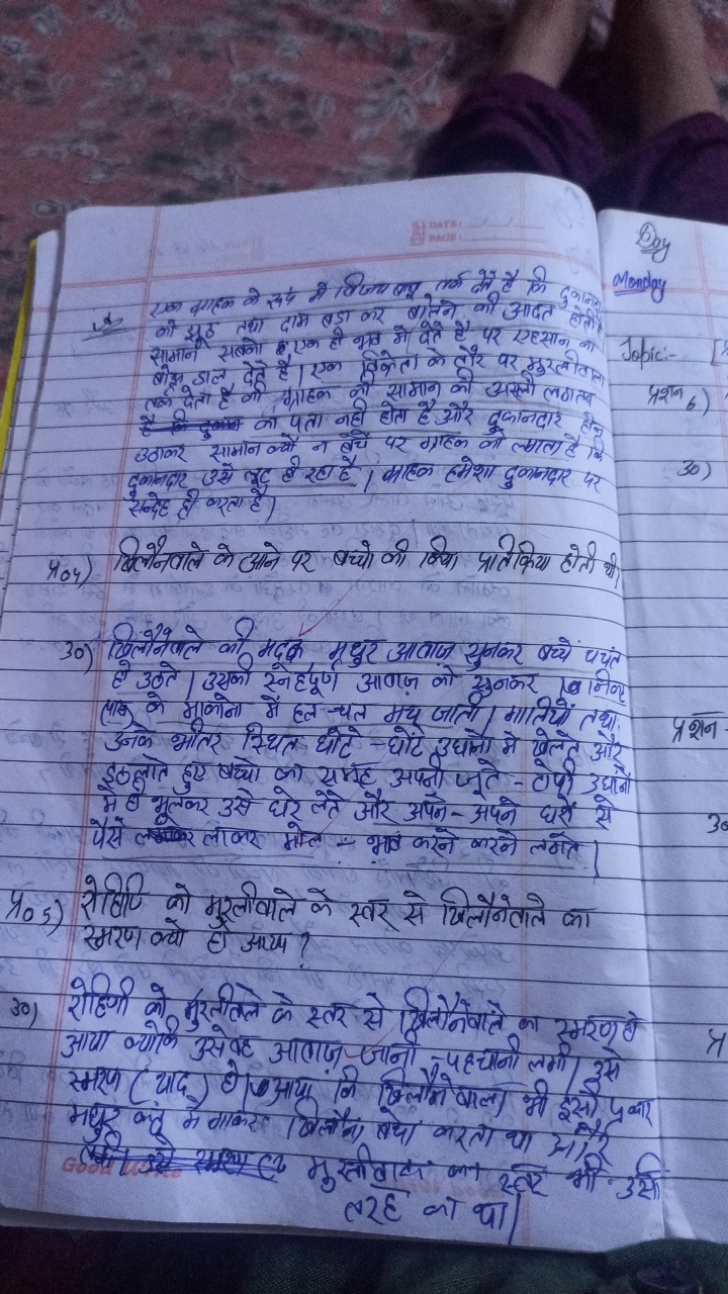 DATE:
PAGE:
एक ग्राहक के रूप में विजय बाबू तर्क देते है कि दुकानदारो
को झूठ तथा दाम बडा कर बोलने की आदत होती है
सामान सबको एक ही भाव में देते है पर एहसान का
बोझ डाल देते है। एक विक्रेता के तौर पर मुरलीवाला
तर्क देता है की ग्राहक को सामान की असली लगात्व
का पता नही होता है और दुकानदार हानि
उठाकर सामान क्यों न बेचें पर ग्राहक को लगता है कि
दुकानदार उसे लूट ही रहा है। ग्राहक हमेशा दुकानदार पर
सन्देह ही करता है।
प्र०4) खिलौनेवाले के आने पर बच्चो की क्या प्रतिक्रिया होती थी।
उ०) खिलौनेवाले की मदूक मधुर आवाज़ सुनकर बच्चें चचंल
हो उठते। उसकी स्नेहपूर्ण आवाज़ को सुनकर निकट
के माकोनो में हल-चल मच जाती। गालियों तथा
उनके भीतर स्थित छोटे-छोटे उधानो में खेलते और
इठलाते हुए बच्चो का समूह अपनी जूते-टोपी उधानो
में ही भूलकर उसे घेर लेते और अपने-अपने घरो से
पैसे लाकर मोल-भाव करने करने लगते।
प्र०5) रोहिणि को मुरलीवाले के स्वर से खिलौनेवाले का
स्मरण क्यों हो आया?
उ०) रोहिणी को मुरलीवाले के स्वर से खिलौनेवाले का स्मरण हो
आया क्योंकि उसे वह आवाज़ जानी-पहचानी लगी। उसे
स्मरण (याद) हो आया कि खिलौनेवाला भी इसी प्रकार
मधुर कंठ में गाकर खिलौना बेचा करता था और
मुरलीवाला का स्वर भी उसी
तरह का था।
Good
Day
Monday
Topic:-
प्रशन 6)
उ०)
प्रशन-
उ०
प्र